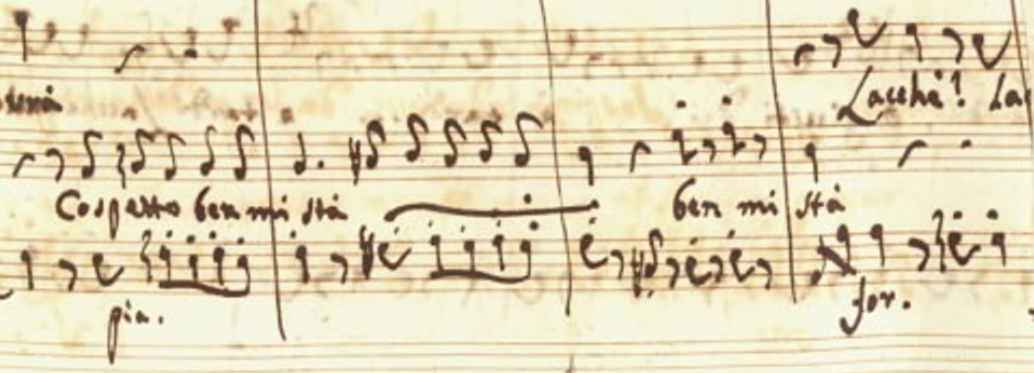 Lacchè! La
Cospetto ben mi stà ben mi stà
pia. for.